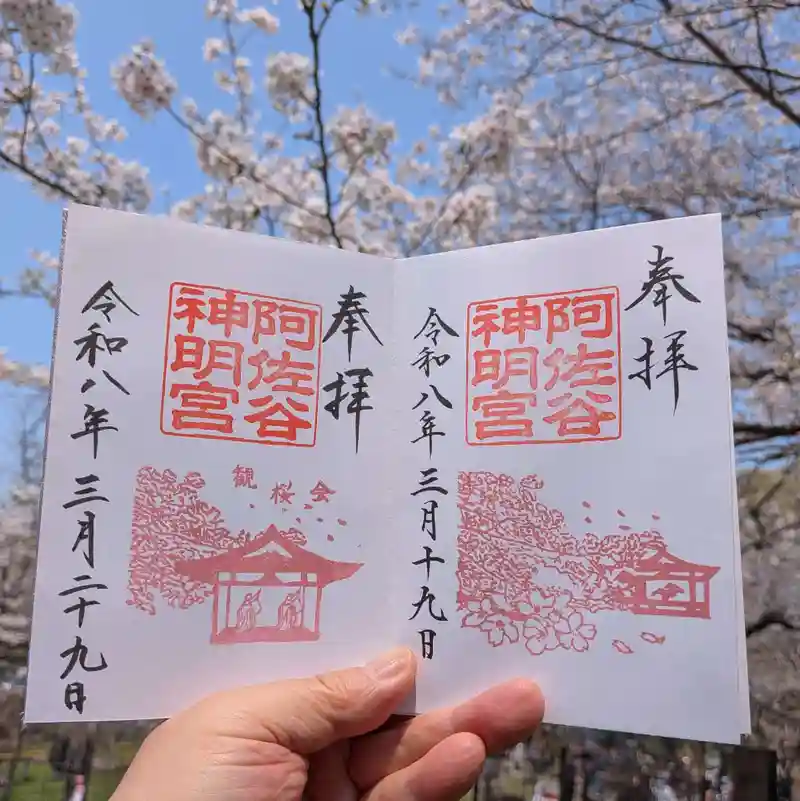 奉拝
阿佐谷
神明宮
令和八年三月十九日
奉拝
阿佐谷
神明宮
観桜会
令和八年三月二十九日